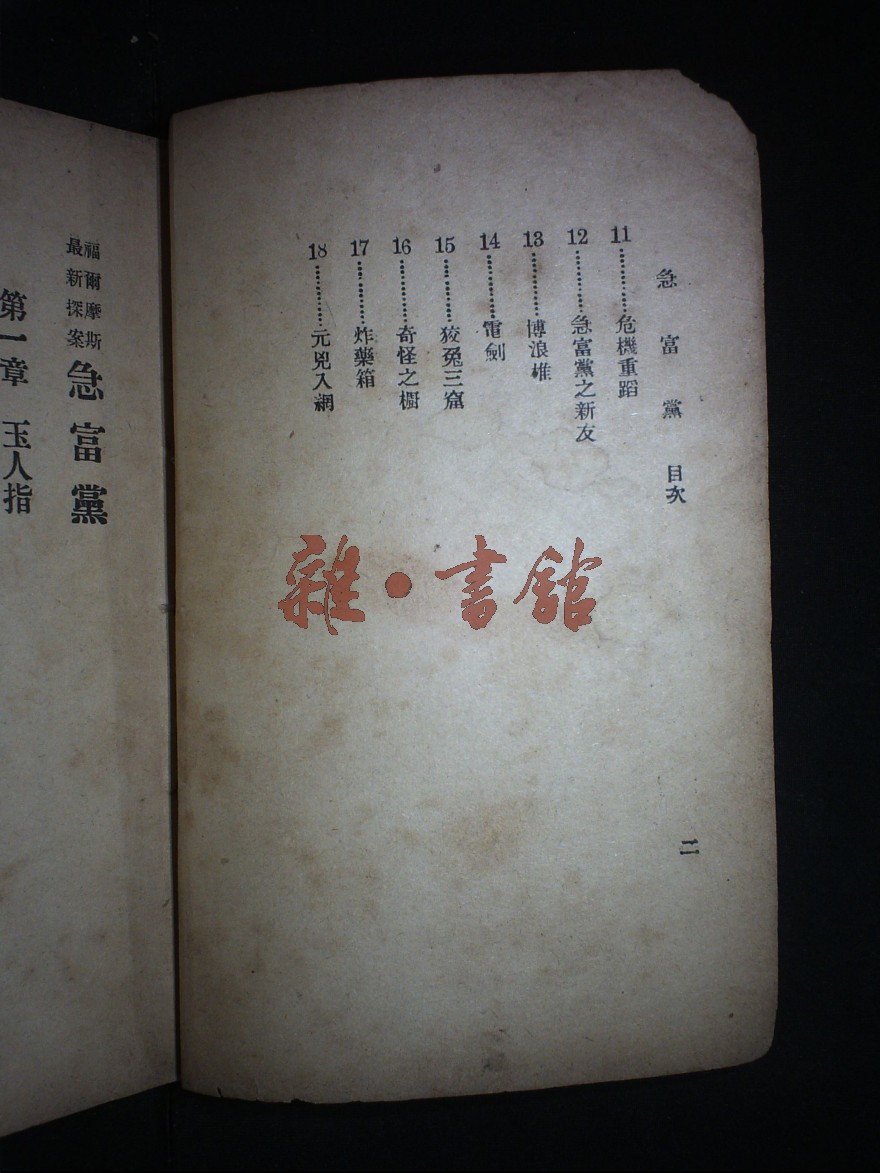 急富黨 目次
11…………危機重蹈
12…………急富黨之新友
13…………博浪椎
14…………電劍
15…………狡兔三窟
16…………奇怪之櫥
17…………炸藥箱
18…………元兇入網
二
福爾摩斯
最新探案
急富黨
第一章 玉人指
雜·書館